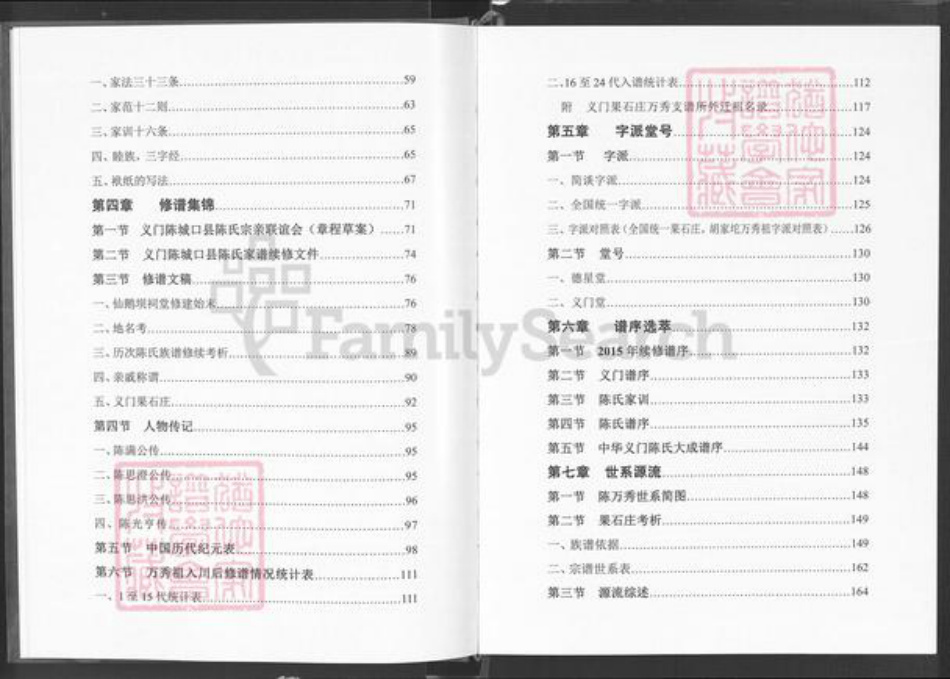 一、家法三十三条........59
二、家范十二则........63
三、家训十六条........65
四、睦族，三字经........65
五、袱纸的写法........67
第四章 修谱集锦........71
第一节 义门陈城口县陈氏宗亲联谊会（章程草案）......71
第二节 义门陈城口县陈氏家谱续修文件........74
第三节 修谱文稿........76
一、仙鹅坝祠堂修建始末........76
二、地名考........78
三、历次陈氏族谱修续考析........89
四、亲戚称谓........90
五、义门果石庄........92
第四节 人物传记........95
一、陈满公传........95
二、陈思澄公传........95
三、陈思洪公传........96
四、陈光亨传........97
第五节 中国历代纪元表........98
第六节 万秀祖入川后修谱情况统计表........111
一、1至15代统计表........111
二、16至24代入谱统计表........112
附 义门果石庄万秀支谱所外迁祖名录........117
第五章 字派堂号........124
第一节 字派........124
一、简谈字派........124
二、全国统一字派........125
三、字派对照表（全国统一果石庄，胡家坨万秀祖字派对照表）......126
第二节 堂号........130
一、德星堂........130
二、义门堂........130
第六章 谱序选萃........132
第一节 2015年续修谱序........132
第二节 义门谱序........133
第三节 陈氏家训........133
第四节 陈氏谱序........135
第五节 中华义门陈氏大成谱序........144
第七章 世系源流........148
第一节 陈万秀世系简图........148
第二节 果石庄考析........149
一、族谱依据........149
二、宗谱世系表........162
第三节 源流综述........164
FamilySearch